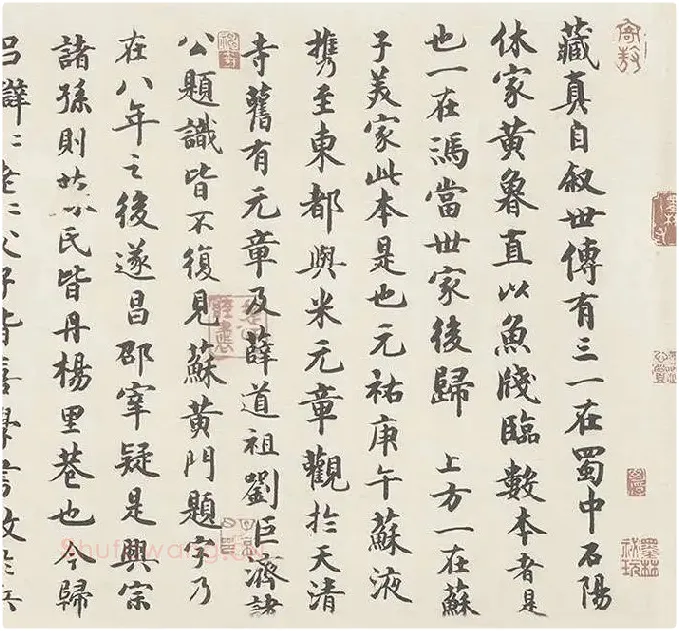 藏真自叙世傳有三一在蜀中石陽
休家黄魯直以魚牋臨數本者是
也一在馮當世家後歸 上方一在蘇
子美家此本是也元祐庚午蘇液
携至東都與米元章觀於天清
寺舊有元章及薛道祖劉巨濟諸
公題識皆不復見蘇黄門題字乃
在八年之後遂昌邵宰疑是興宗
諸孫則 氏皆丹楊里巷也今歸
吕 父子皆喜學書故於兵
Shufawang.CN